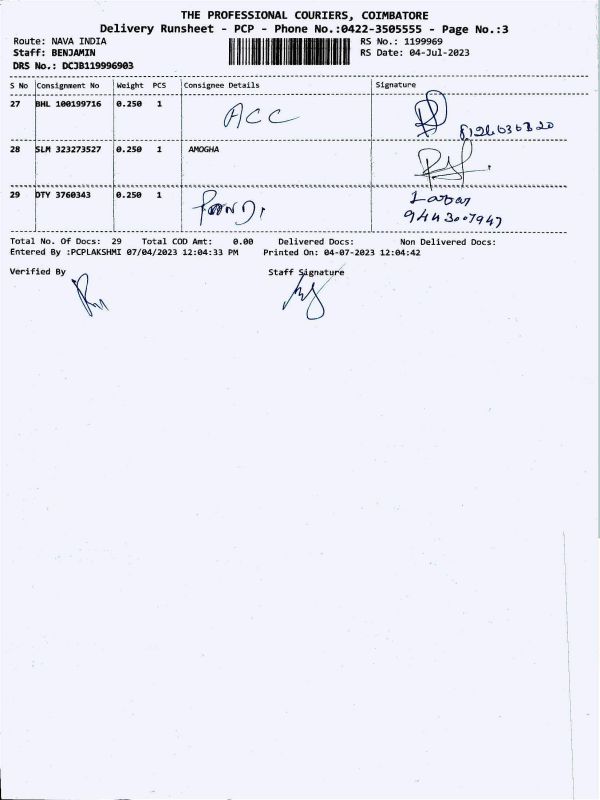 THE PROFESSIONAL COURIERS, COIMBATORE
Delivery Runsheet - PCP - Phone No.:0422-3505555 - Page No.:3
Route: NAVA INDIA
Staff: BENJAMIN
DRS No.: DCJB119996903
RS No.: 1199969
RS Date: 04-Jul-2023
S No Consignment No Weight PCS Consignee Details Signature
27 BHL 100199716 0.250 1 ACC
28 SLM 323273527 0.250 1 AMOGHA
29 DTY 3760343 0.250 1
9443007947
Total No. Of Docs: 29 Total COD Amt: 0.00 Delivered Docs: Non Delivered Docs:
Entered By :PCPLAKSHMI 07/04/2023 12:04:33 PM Printed On: 04-07-2023 12:04:42
Verified By Staff Signature